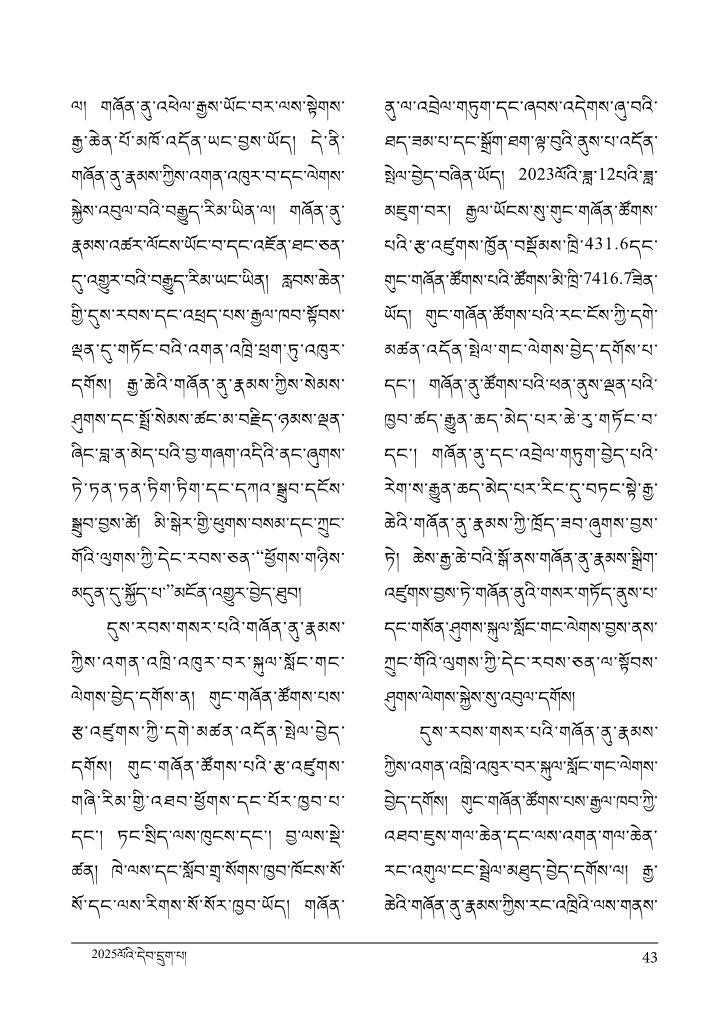 ལ། གཞོན་ནུ་འཕེལ་རྒྱས་ཡོང་བར་ལས་སྟེགས་
རྒྱ་ཆེན་པོ་མཁོ་འདོན་ཡང་བྱས་ཡོད། དེ་ནི་
གཞོན་ནུ་རྣམས་ཀྱིས་འགན་འཁུར་བ་དང་ལེགས་
སྐྱེས་འབུལ་བའི་བརྒྱུད་རིམ་ཡིན་ལ། གཞོན་ནུ་
རྣམས་འཚར་ལོངས་ཡོང་བ་དང་འཇོན་ཐང་ཅན་
དུ་འགྱུར་བའི་བརྒྱུད་རིམ་ཡང་ཡིན། རླབས་ཆེན་
གྱི་དུས་རབས་དང་འཕྲད་པས་རྒྱལ་ཁབ་སྟོབས་
ལྡན་དུ་གཏོང་བའི་འགན་འཁྲི་ཕྲག་ཏུ་འཁུར་
དགོས། རྒྱ་ཆེའི་གཞོན་ནུ་རྣམས་ཀྱིས་སེམས་
ཤུགས་དང་སྤྲོ་སེམས་ཚང་མ་བརྗིད་ཉམས་ལྡན་
ཞིང་བླ་ན་མེད་པའི་བྱ་གཞག་འདིའི་ནང་ཞུགས་
ཏེ་ཏན་ཏན་ཏིག་ཏིག་དང་དཀའ་སྒྲུབ་དངོས་
སྒྲུབ་བྱས་ཚེ། མི་སྒེར་གྱི་ཕུགས་བསམ་དང་ཀྲུང་
གོའི་ལུགས་ཀྱི་དེང་རབས་ཅན་“ཕྱོགས་གཉིས་
མདུན་དུ་སྐྱོད་པ་”མངོན་འགྱུར་བྱེད་ཐུབ།
དུས་རབས་གསར་པའི་གཞོན་ནུ་རྣམས་
ཀྱིས་འགན་འཁྲི་འཁུར་བར་སྐུལ་སློང་གང་
ལེགས་བྱེད་དགོས་ན། གུང་གཞོན་ཚོགས་པས་
རྩ་འཛུགས་ཀྱི་དགེ་མཚན་འདོན་སྤེལ་བྱེད་
དགོས། གུང་གཞོན་ཚོགས་པའི་རྩ་འཛུགས་
གཞི་རིམ་གྱི་འཐབ་ཕྱོགས་དང་པོར་ཁྱབ་པ་
དང་། ཏང་སྲིད་ལས་ཁུངས་དང་། བྱ་ལས་སྡེ་
ཚན། ཁེ་ལས་དང་སློབ་གྲྭ་སོགས་ཁྱབ་ཁོངས་སོ་
སོ་དང་ལས་རིགས་སོ་སོར་ཁྱབ་ཡོད། གཞོན་
ནུ་ལ་འབྲེལ་གཏུག་དང་ཞབས་འདེགས་ཞུ་བའི་
ཐད་ཟམ་པ་དང་སྒྲོག་ཐག་ལྟ་བུའི་ནུས་པ་འདོན་
སྤེལ་བྱེད་བཞིན་ཡོད། 2023ལོའི་ཟླ་12པའི་ཟླ་
མཇུག་བར། རྒྱལ་ཡོངས་སུ་གུང་གཞོན་ཚོགས་
པའི་རྩ་འཛུགས་ཁྱོན་བསྡོམས་ཁྲི་431.6དང་
གུང་གཞོན་ཚོགས་པའི་ཚོགས་མི་ཁྲི་7416.7ཟིན་
ཡོད། གུང་གཞོན་ཚོགས་པའི་རང་ངོས་ཀྱི་དགེ་
མཚན་འདོན་སྤེལ་གང་ལེགས་བྱེད་དགོས་པ་
དང་། གཞོན་ནུ་ཚོགས་པའི་ཕན་ནུས་ལྡན་པའི་
ཁྱབ་ཚད་རྒྱུན་ཆད་མེད་པར་ཆེ་རུ་གཏོང་བ་
དང་། གཞོན་ནུ་དང་འབྲེལ་གཏུག་བྱེད་པའི་
རེག་ས་རྒྱུན་ཆད་མེད་པར་རིང་དུ་བཏང་སྟེ་རྒྱ་
ཆེའི་གཞོན་ནུ་རྣམས་ཀྱི་ཁྲོད་ཟབ་ཞུགས་བྱས་
ཏེ། ཆེས་རྒྱ་ཆེ་བའི་སྒོ་ནས་གཞོན་ནུ་རྣམས་སྒྲིག་
འཛུགས་བྱས་ཏེ་གཞོན་ནུའི་གསར་གཏོད་ནུས་པ་
དང་གསོན་ཤུགས་སྐུལ་སློང་གང་ལེགས་བྱས་ནས་
ཀྲུང་གོའི་ལུགས་ཀྱི་དེང་རབས་ཅན་ལ་སྟོབས་
ཤུགས་ལེགས་སྐྱེས་སུ་འབུལ་དགོས།
དུས་རབས་གསར་པའི་གཞོན་ནུ་རྣམས་
ཀྱིས་འགན་འཁྲི་འཁུར་བར་སྐུལ་སློང་གང་ལེགས་
བྱེད་དགོས། གུང་གཞོན་ཚོགས་པས་རྒྱལ་ཁབ་ཀྱི་
འཐབ་ཇུས་གལ་ཆེན་དང་ལས་འགན་གལ་ཆེན་
རང་འགུལ་ངང་སྦྲེལ་མཐུད་བྱེད་དགོས་ལ། རྒྱ་
ཆེའི་གཞོན་ནུ་རྣམས་ཀྱིས་རང་འཁྲིའི་ལས་གནས་
2025ལོའི་དེབ་དྲུག་པ།
43